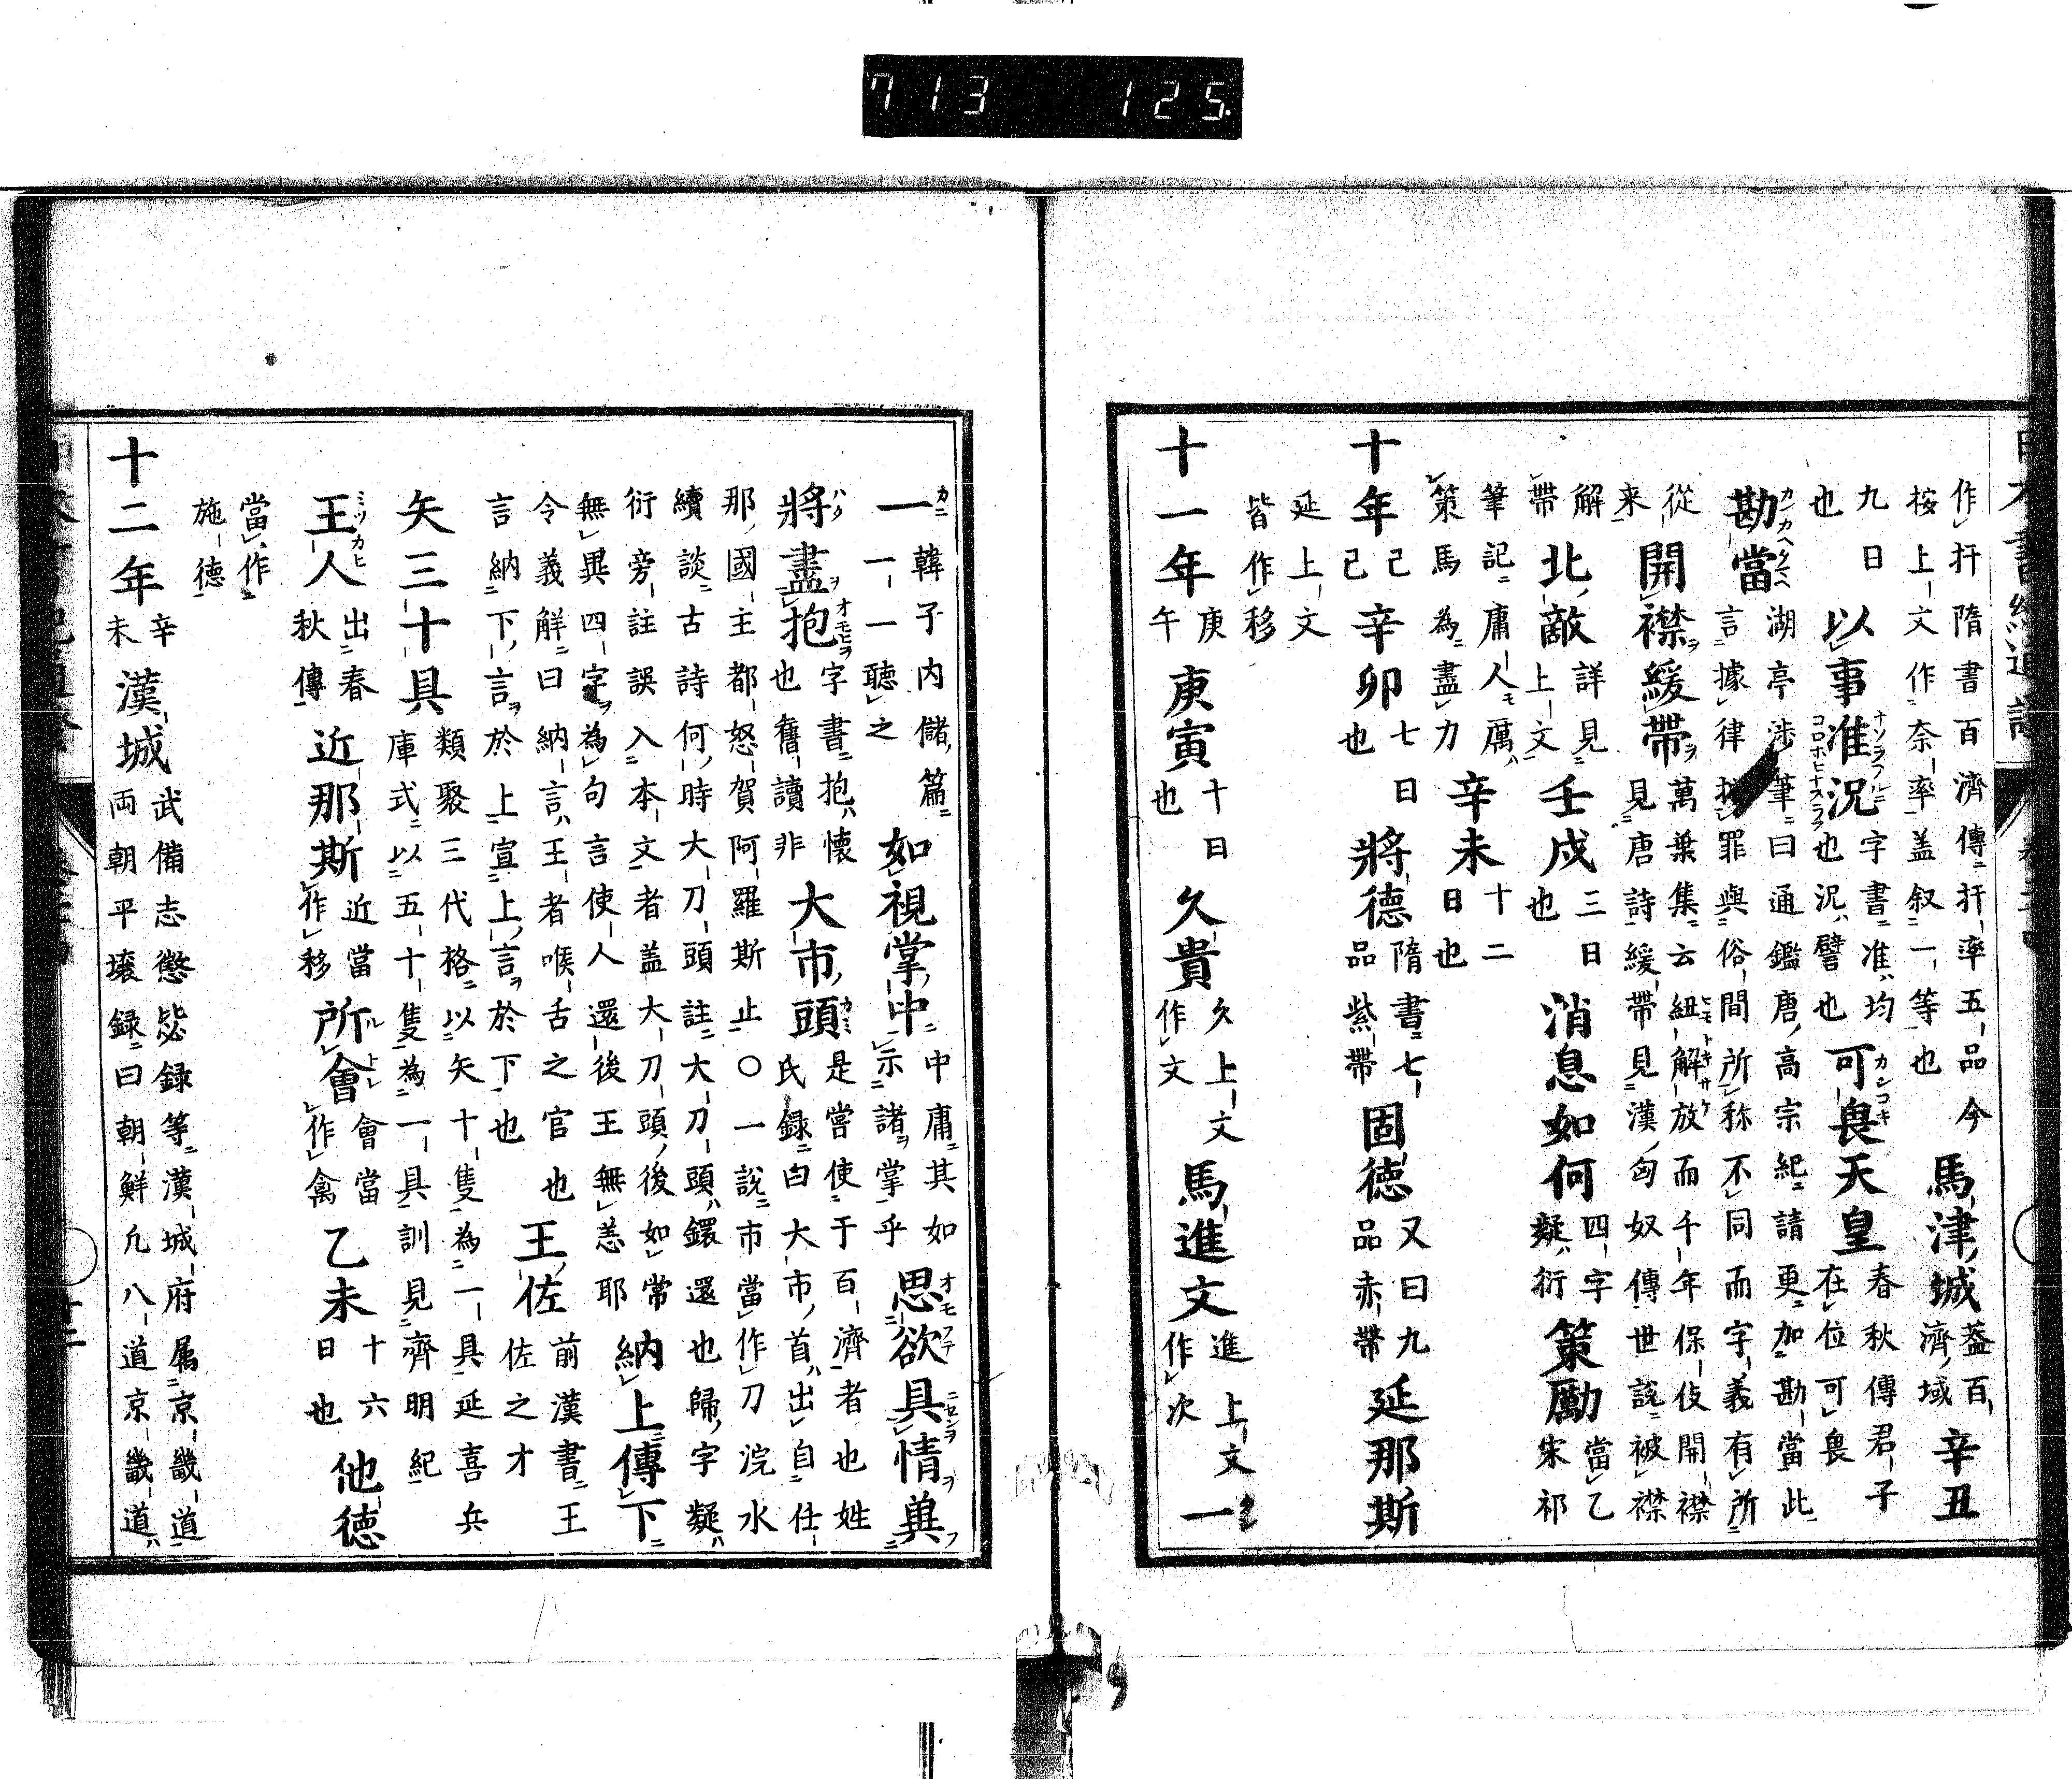 713 125
作扞隋書百濟傳扞率五品今
按上文作奈率盖叙一等也
馬津城
盖百
濟域
辛丑
九日
也
以事准況
字書准均
也況譬也
可畏天皇
春秋傳君子
在位可畏
勘當
湖亭渉筆曰通鑑唐高宗紀請更加勘當此
言據律
罪與俗間所称不同而字義有所
從
来
開襟緩帶
萬葉集云紐解放而千年保伎開襟
見唐詩緩帶見漢匈奴傳世說被襟
解
帶
北敵
詳見
上文
壬戌
三日
也
消息如何
四字
疑衍
策勵
當乙
宋祁
筆記庸人厲
策馬為盡力
辛未
十二
日也
十年
己
己
辛卯
七日
也
將德
隋書七
品紫帶
固德
又曰九
品赤帶
延那斯
延上文
皆作移
十一年
庚
午
庚寅
十日
也
久貴
久上文
作文
馬進文
進上文
作次
一
一一聽之
韓子内儲篇
如視掌中
中庸其如
示諸掌乎
思欲具情
將盡抱
字書抱懷
也舊讀非
大市頭
是當使于百濟者也姓
氏録曰大市首出自仕
那國主都怒賀阿羅斯止〇一說市當作刀浣水
續談古詩何時大刀頭註大刀頭鐶還也歸字疑
衍旁註誤入本文者盖大刀頭後如常
無異四字為句言使人還後王無恙耶
納上傳下
令義解曰納言王者喉舌之官也
言納下言於上宣上言於下也
王佐
前漢書王
佐之才
矢三十具
類聚三代格以矢十隻為一具延喜兵
庫式以五十隻為一具訓見齊明紀
王人
出春
秋傳
近那斯
近當
作移
所會
會當
作禽
乙未
十六
日也
他徳
當作
施徳
十二年
辛
未
漢城
武備志懲毖録等漢城府属京畿道
両朝平壌録曰朝鮮凡八道京畿道